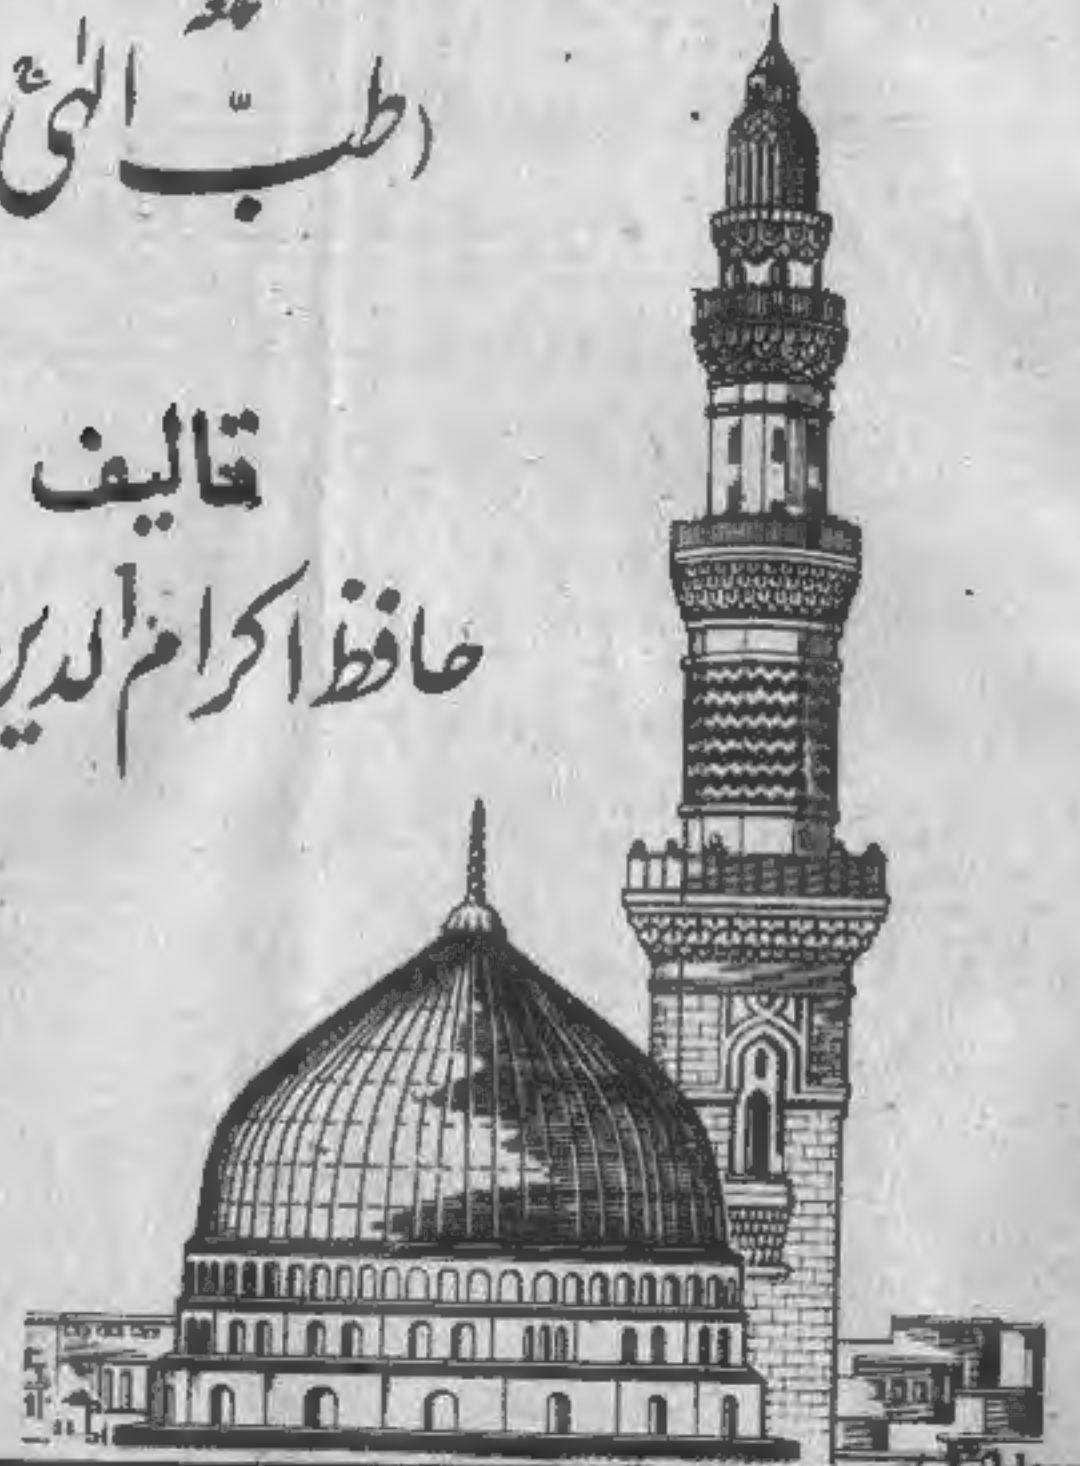 (طبّ الٰہی
تالیف
حافظ اکرام الدین